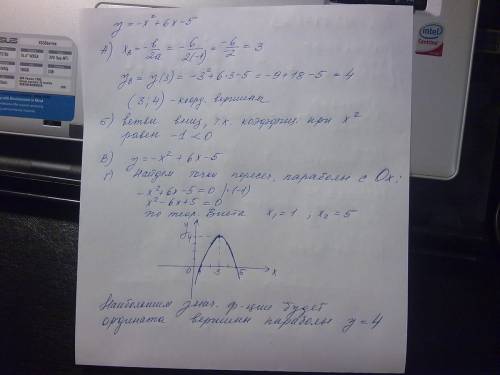 y=-x²+6x-5
А) x₀=-b/2a=-6/2(-1)=-6/-2=3
y₀=y(3)=-3²+6·3-5=-9+18-5=4
(3;4)-коорд. вершины
Б) ветви вниз, т.к. коэффициен. при x²
равен -1<0
В) y=-x²+6x-5
Г) Найдем точки пересеч. параболы с Ox:
-x²+6x-5=0 |·(-1)
x²-6x+5=0
по теор. Виета x₁=1, x₂=5
y
4
0 1 3 5 x
Наибольшим знач. ф-ции будет
ордината вершины параболы y=4
ASUS
intel
Centrino